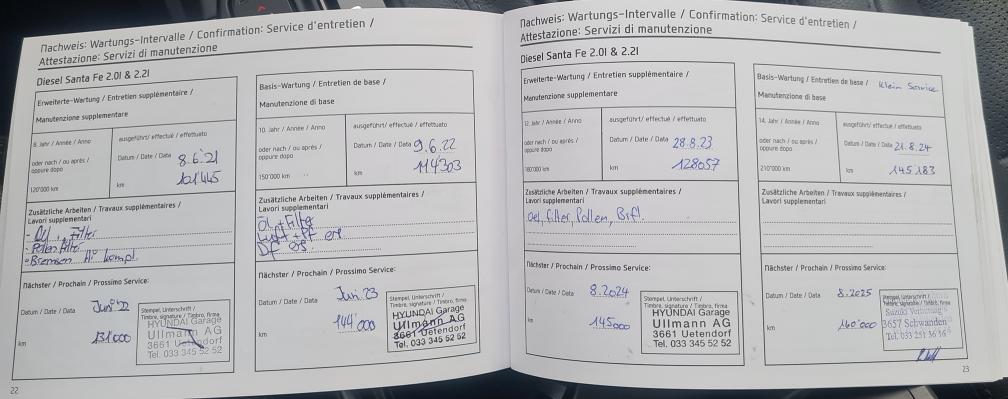 Nachweis: Wartungs-Intervalle / Confirmation: Service d'entretien /
Attestazione: Servizi di manutenzione
Diesel Santa Fe 2.0l & 2.2l
Erweiterte-Wartung / Entretien supplémentaire /
Manutenzione supplementare
8. Jahr / Année / Anno
ausgeführt/ effectué / effettuato
oder nach / ou après /
oppure dopo
Datum / Date / Data 8.6.21
120'000 km
km 101445
Zusätzliche Arbeiten / Travaux supplémentaires /
Lavori supplementari
Filter
- Pollenfilter
- Bremsen
Nächster / Prochain / Prossimo Service:
Datum / Date / Data Juni 22
km 131000
Stempel, Unterschrift /
Timbre, signature / Timbro, firma
HYUNDAI Garage
Ullmann AG
3661 Uetendorf
Tel. 033 345 52 52
22
Basis-Wartung / Entretien de base /
Manutenzione di base
10. Jahr / Année / Anno
ausgeführt/ effectué / effettuato
oder nach / ou après /
oppure dopo
Datum / Date / Data 9.6.22
150'000 km
km 114303
Zusätzliche Arbeiten / Travaux supplémentaires /
Lavori supplementari
Öl + Filter
Luft + PF ers
DF ers.
Nächster / Prochain / Prossimo Service:
Datum / Date / Data Juni 23
km 144'000
Stempel, Unterschrift /
Timbre, signature / Timbro, firma
HYUNDAI Garage
Ullmann AG
3661 Uetendorf
Tel. 033 345 52 52
Nachweis: Wartungs-Intervalle / Confirmation: Service d'entretien /
Attestazione: Servizi di manutenzione
Diesel Santa Fe 2.0l & 2.2l
Erweiterte-Wartung / Entretien supplémentaire /
Manutenzione supplementare
12. Jahr / Année / Anno
ausgeführt/ effectué / effettuato
oder nach / ou après /
oppure dopo
Datum / Date / Data 28.8.23
180'000 km
km 128057
Zusätzliche Arbeiten / Travaux supplémentaires /
Lavori supplementari
Oel, Filter, Pollen, Brfl.
Nächster / Prochain / Prossimo Service:
Datum / Date / Data 8.2024
km 145000
Stempel, Unterschrift /
Timbre, signature / Timbro, firma
HYUNDAI Garage
Ullmann AG
3661 Uetendorf
Tel. 033 345 52 52
Basis-Wartung / Entretien de base / Klein Service
Manutenzione di base
14. Jahr / Année / Anno
ausgeführt/ effectué / effettuato
oder nach / ou après /
oppure dopo
Datum / Date / Data 21.8.24
210'000 km
km 145183
Zusätzliche Arbeiten / Travaux supplémentaires /
Lavori supplementari
Nächster / Prochain / Prossimo Service:
Datum / Date / Data 8.2025
km 160'000
Stempel, Unterschrift /
Timbre, signature / Timbro, firma
Suzuki Vertretung
3657 Schwanden
Tel. 033 251 36 16
23